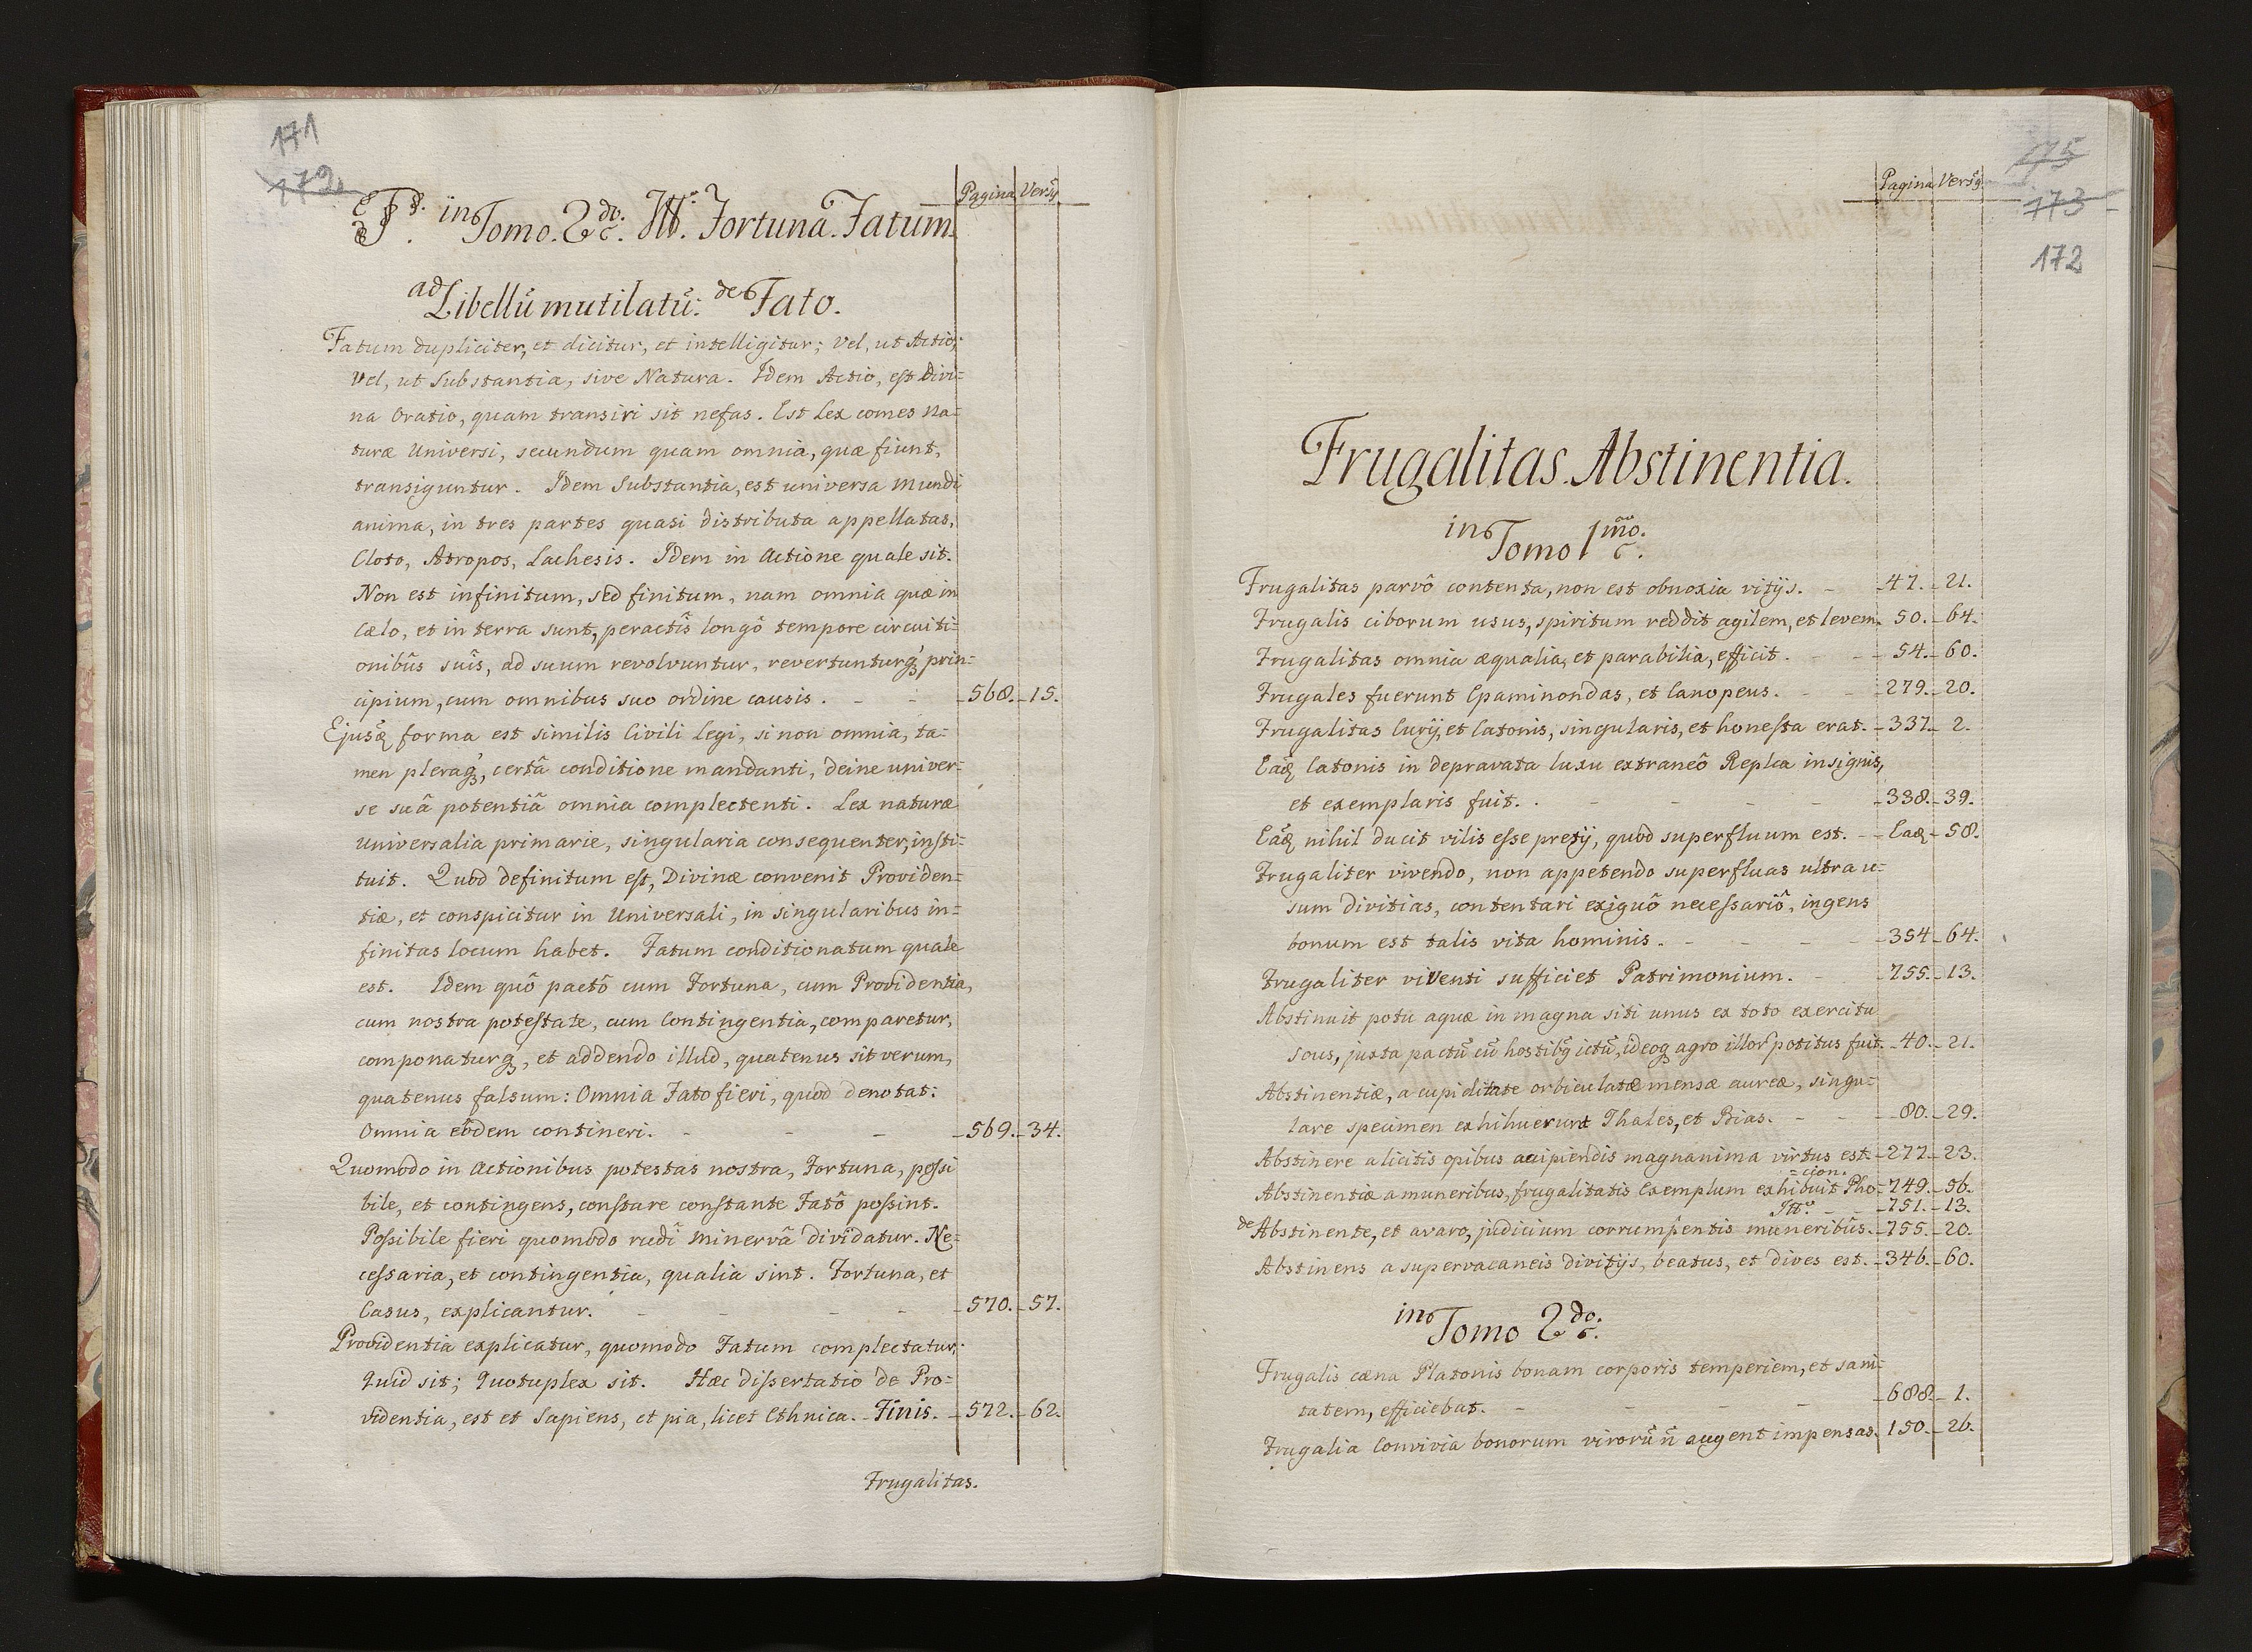 171
172
Pagina Versꝰ
in Tomo. 2do. Itt. Fortuna. Fatum.
ad Libellū mutilatū: de Fato.
Fatum dupliciter, et dicitur, et intelligitur; Vel, ut Actio;
Vel, ut Substantia, sive Natura. Idem Actio, est Divi=
na Oratio, quam transiri sit nefas. Est Lex comes na=
turæ Universi, secundum quam omnia, quæ fiunt,
transiguntur. Idem Substantia, est universa Mundi
anima, in tres partes quasi distributa appellatas,
Cloto, Atropos, Lachesis. Idem in Actione quale sit.
Non est infinitum, sed finitum, nam omnia quæ in
Cælo, et in terra sunt, peractîs longô tempore circuiti=
onibûs suîs, ad suum revolvuntur, revertunturq́ꝫ prin=
cipium, cum omnibus suo ordine causis. - - 568. - 15.
Ejusꝗ forma est similis Civili legi, si non omnia, ta=
men pleraq́ꝫ, certâ conditione mandanti, deine univer=
se suâ potentiâ omnia complectenti. Lex naturæ
Universalia primarie, singularia consequenter, insti=
tuit. Quod definitum est, Divinæ convenit Providen=
tiæ, et conspicitur in Universali, in singularibus in=
finitas locum habet. Fatum conditionatum quale
est. Idem quô pactô cum Fortuna, cum Providentia,
cum nostra potestate, cum Contingentia, comparetur,
componaturqꝫ, et addendo illud, quatenus sit verum,
quatenus falsum: Omnia Fato fieri, quod denotat:
Omnia eôdem contineri. - - - 569. - 34.
Quomodo in Actionibus potestas nostra, Fortuna, possi
bile, et contingens, constare constante Fatô possint.
Possibile fieri quomodo rudî Minervâ dividatur. Ne=
cessaria, et contingentia, qualia sint. Fortuna, et
Casus, explicantur. - - - - 570. - 57.
Providentia explicatur, quomodo Fatum complectatur;
Quid sit; Quotuplex sit. Hæc dissertatio de Pro=
videntia, est et Sapiens, et pia, licet Ethnica. - Finis. - 572. - 62.
Frugalitas.
175
173
172
Pagina Versꝰ
Frugalitas. Abstinentia.
in Tomo 1mo.
Frugalitas parvô contenta, non est obnoxia vitijs. - 47. - 21.
Frugalis ciborum usus, spiritum reddit agilem, et levem. 50. - 64.
Frugalitas omnia æqualia, et parabilia, efficit. - - 54. - 60.
Frugales fuerunt Epaminondas, et Canopeus. - - 279. - 20.
Frugalitas Curij, et Catonis, singularis, et honesta erat. - 337. - 2.
Eaꝗ Catonis in depravata luxu extraneô Replca insignis,
et exemplaris fuit. - - - - - 338. - 39.
Eaꝗ nihil ducit vilis esse pretij, quod superfluum est. - - Eaꝗ - 58.
Frugaliter vivendo, non appetendo superfluas ultra u=
sum divitias, contentari exiguô necessariô, ingens
bonum est talis vita hominis. - - - - 354 - 64.
Frugaliter viventi sufficiet Patrimonium. - 755. - 13.
Abstinuit potu aquæ in magna siti unus ex toto exercitu
Sous, juxta pactū cū hostibꝰ ictū, ideoqꝫ agro illor potitus fuit. - 40. - 21.
Abstinentiæ, a cupiditate orbiculatæ mensæ aureæ, singu=
lare specimen exhibuerunt Thales, et Bias. - - 80. - 29.
Abstinere a licitis opibus accipiendis magnanima virtus est. - 277. - 23.
Abstinentiæ a muneribus, frugalitatis Exemplum exhibuit Pho=cion. - 749. - 56.
Itt. - - 751. - 13.
de Abstinente, et avaro, judicium corrumpentis muneribûs. - 755. - 20.
Abstinens a supervacaneis divitijs, beatus, et dives est. - 346. - 60.
in Tomo 2do.
Frugalis cæna Platonis bonam corporis temperiem, et sani=
tatem, efficiebat. - - - - 688. - 1.
Frugalia Convivia bonorum virorū n̄ augent impensas. 150. - 26.